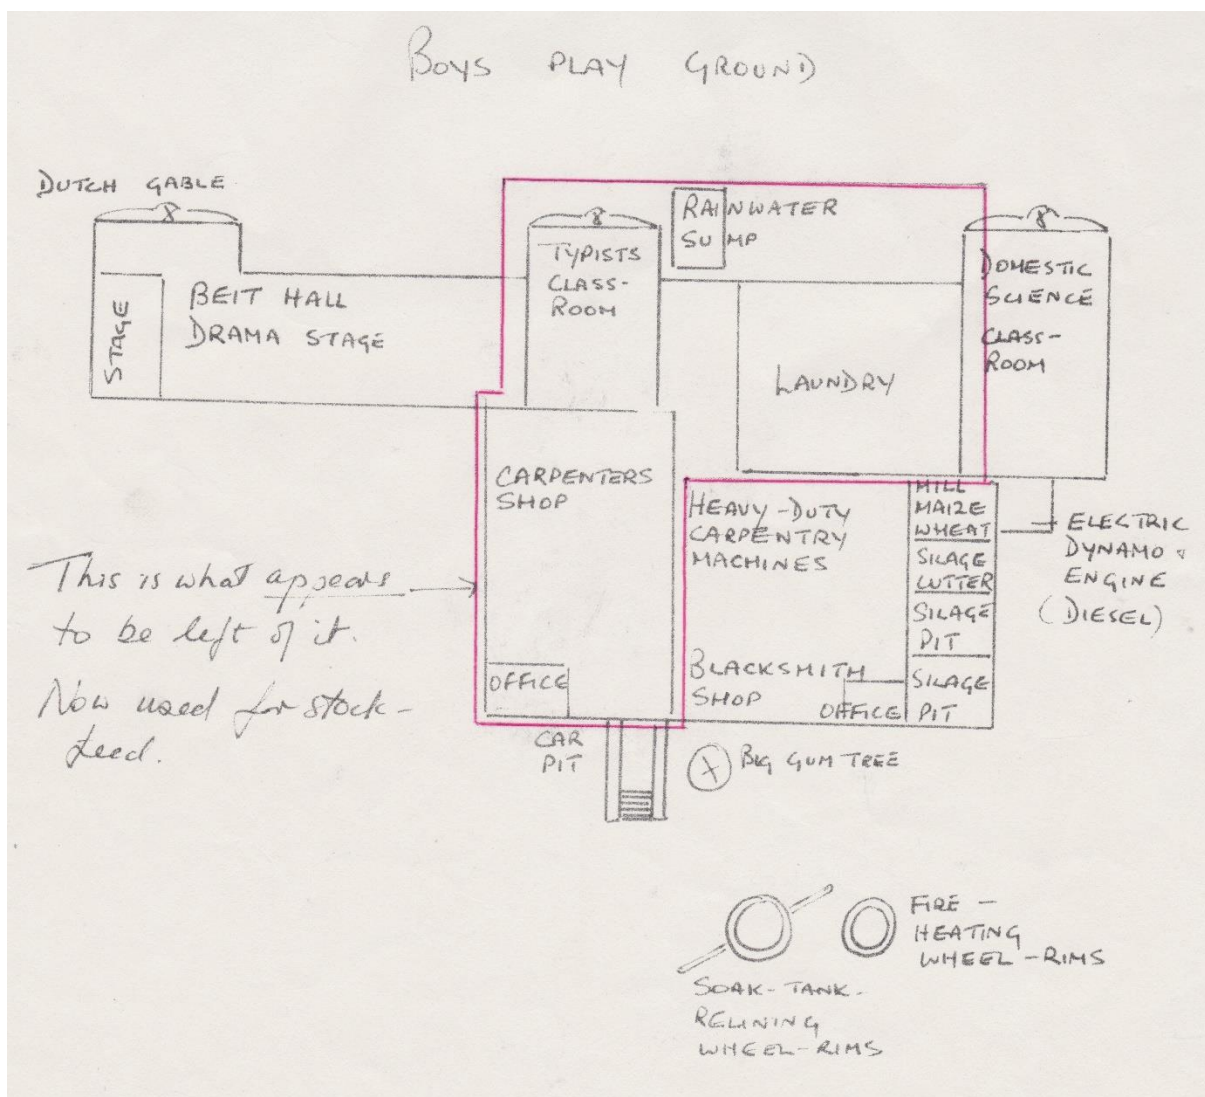 BOYS PLAY GROUND
DUTCH GABLE
STAGE
BEIT HALL
DRAMA STAGE
TYPISTS
CLASS-
ROOM
RAINWATER
SUMP
DOMESTIC
SCIENCE
CLASS-
ROOM
LAUNDRY
CARPENTERS
SHOP
OFFICE
HEAVY-DUTY
CARPENTRY
MACHINES
BLACKSMITH
SHOP
OFFICE
MILL
MAIZE
WHEAT
SILAGE
CUTTER
SILAGE
PIT
SILAGE
PIT
ELECTRIC
DYNAMO &
ENGINE
(DIESEL)
This is what appears
to be left of it.
Now used for stock-
feed.
CAR
PIT
BIG GUM TREE
FIRE -
HEATING
WHEEL-RIMS
SOAK-TANK-
RELINING
WHEEL-RIMS